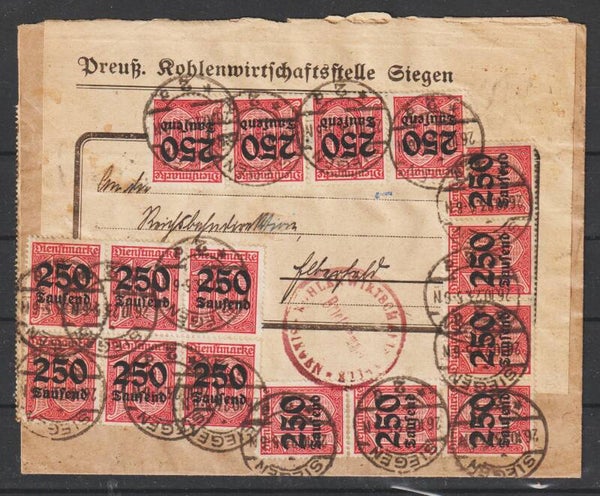 Preuß. Kohlenwirtschaftsstelle Siegen
250 Tausend
250 Tausend
250 Tausend
250 Tausend
An die
Reichsbahndirektion,
Elberfeld
250 Tausend
250 Tausend
250 Tausend
250 Tausend
Dienstmarke
250
Tausend
Dienstmarke
250
Tausend
250
Tausend
Dienstmarke
250
Tausend
Dienstmarke
250
Tausend
Dienstmarke
250
Tausend
250 Tausend
250 Tausend
SIEGEN
SIEGEN
SIEGEN
SIEGEN